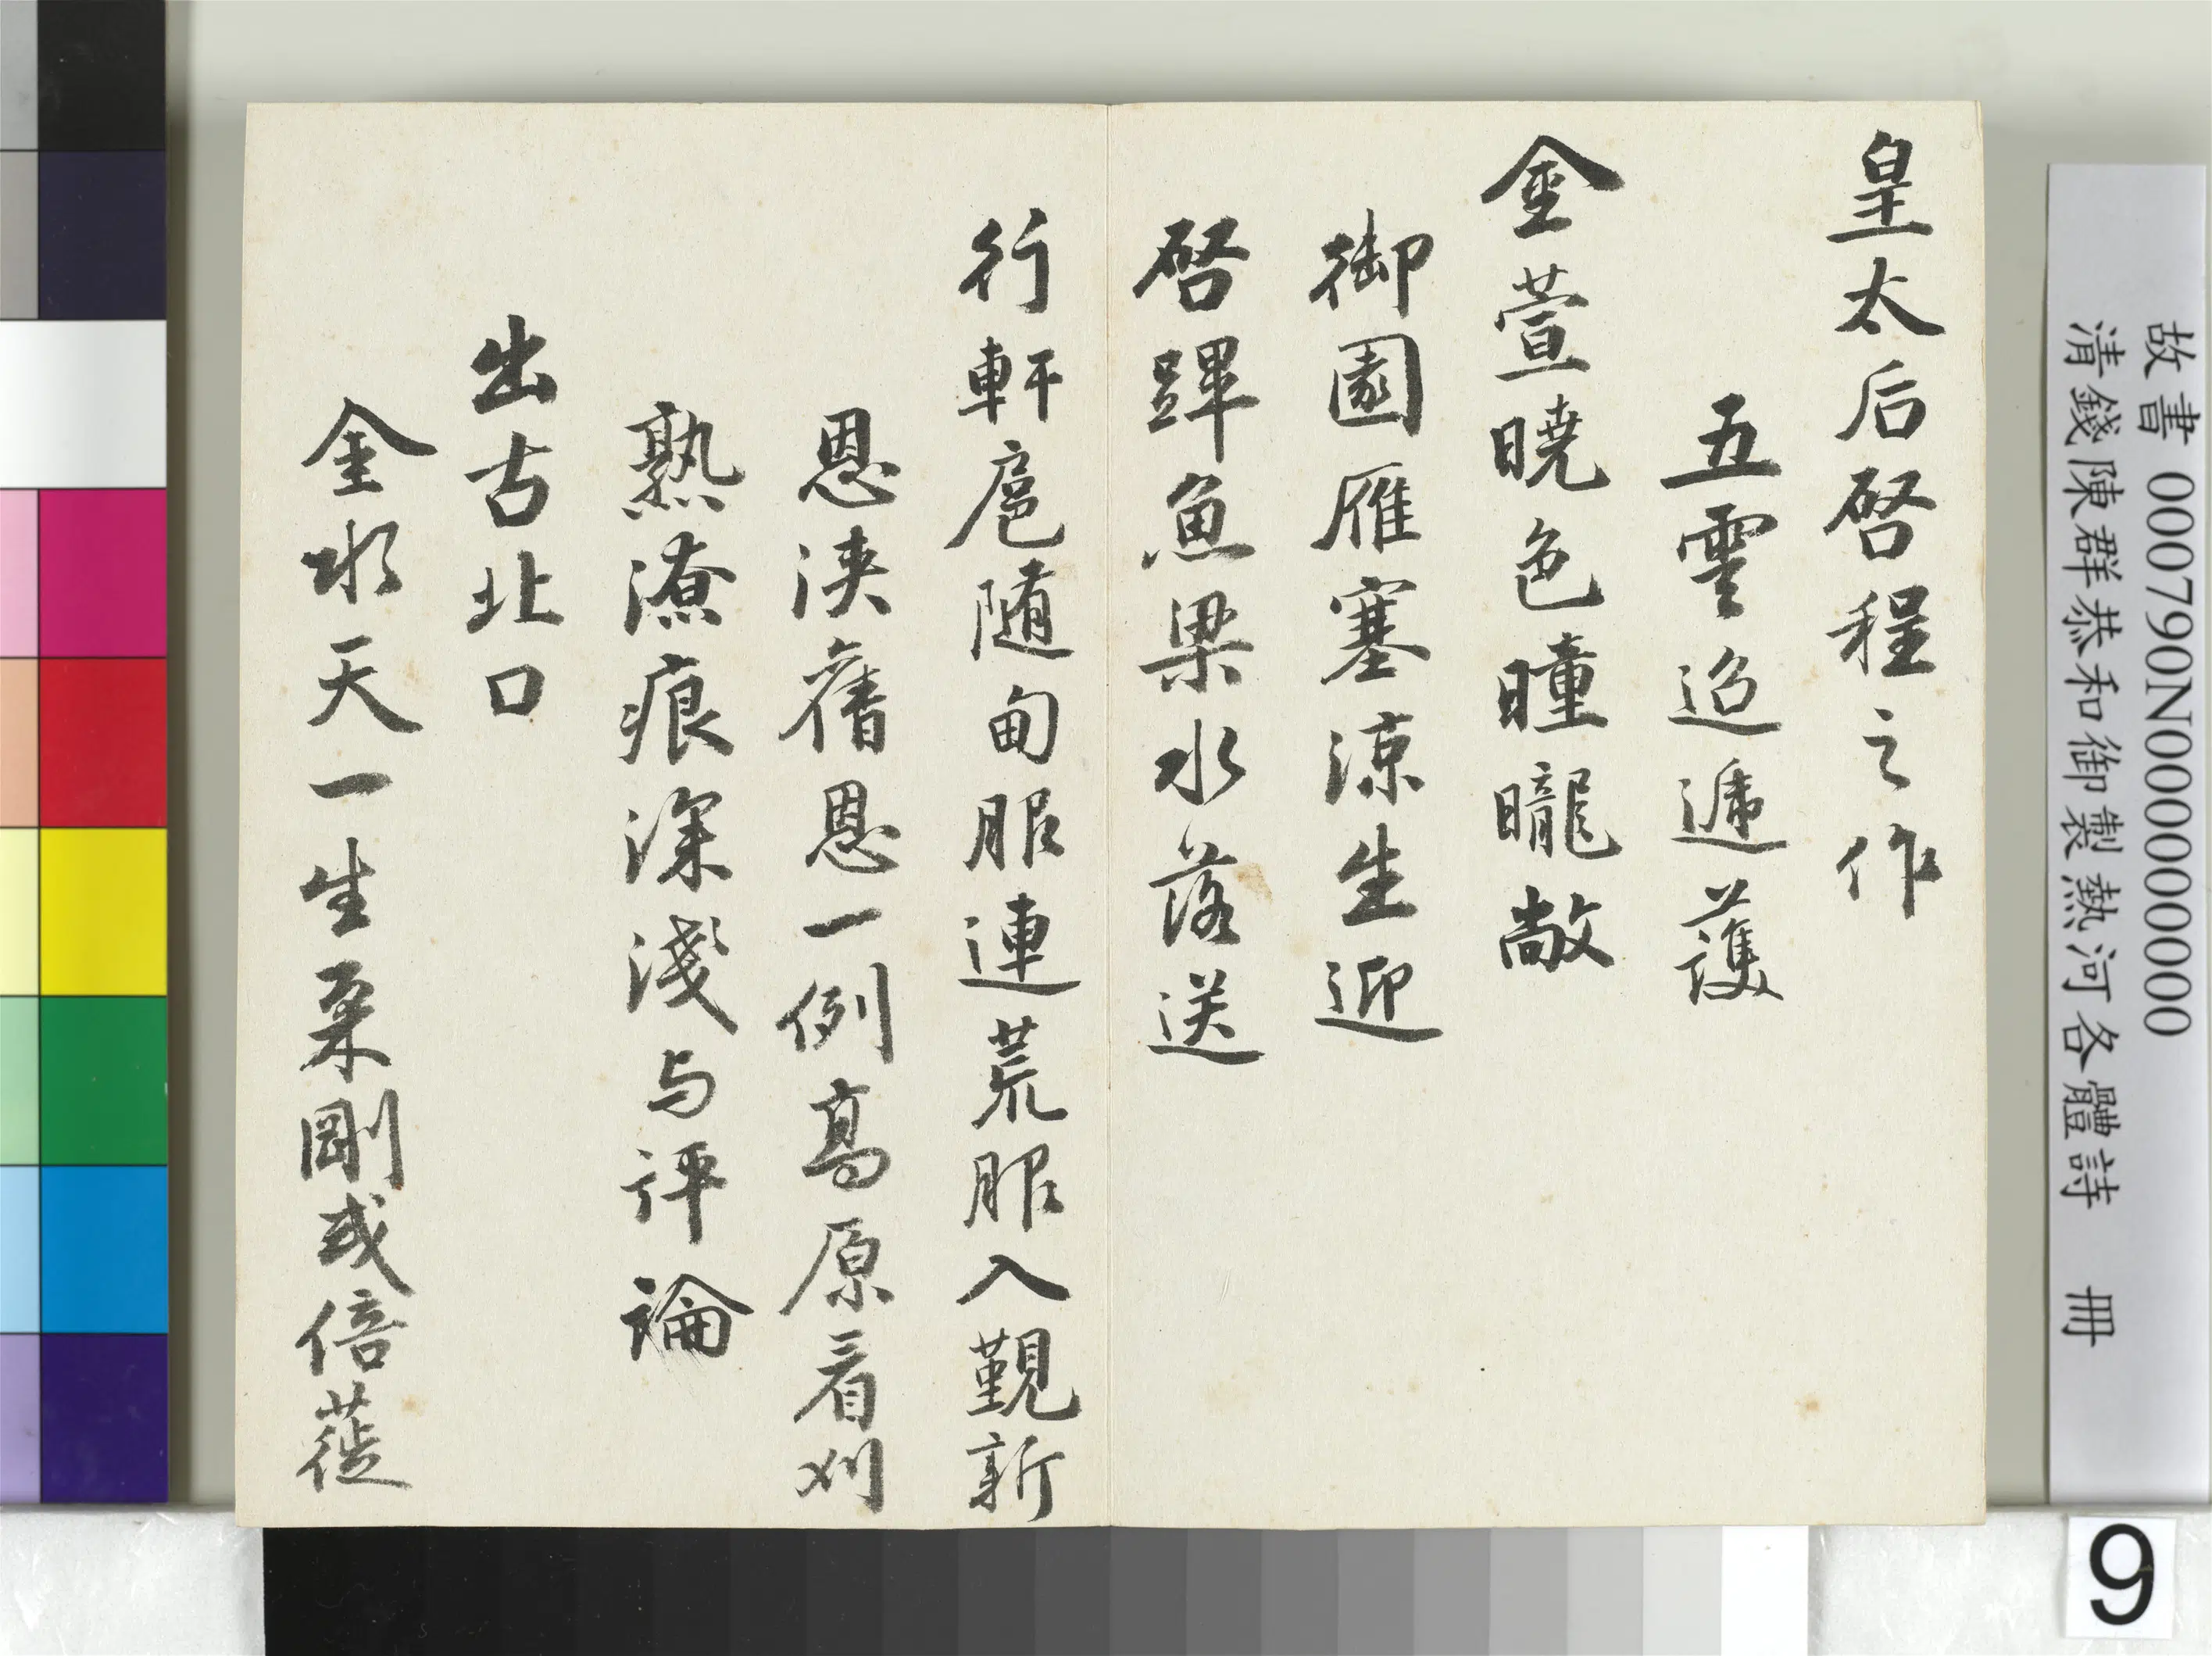 皇太后啓程之作
五雲迢遞護
金萱曉色曈曨敞
御園雁塞涼生迎
啓蹕魚梁水落送
行軒扈隨甸服連荒服入覲新
恩浹舊恩一例髙原看刈
熟潦痕深淺与評論
出古北口
金水天一生柔剛或倍蓰
故書 000790N000000000
清錢陳群恭和御製熱河各體詩 冊
9